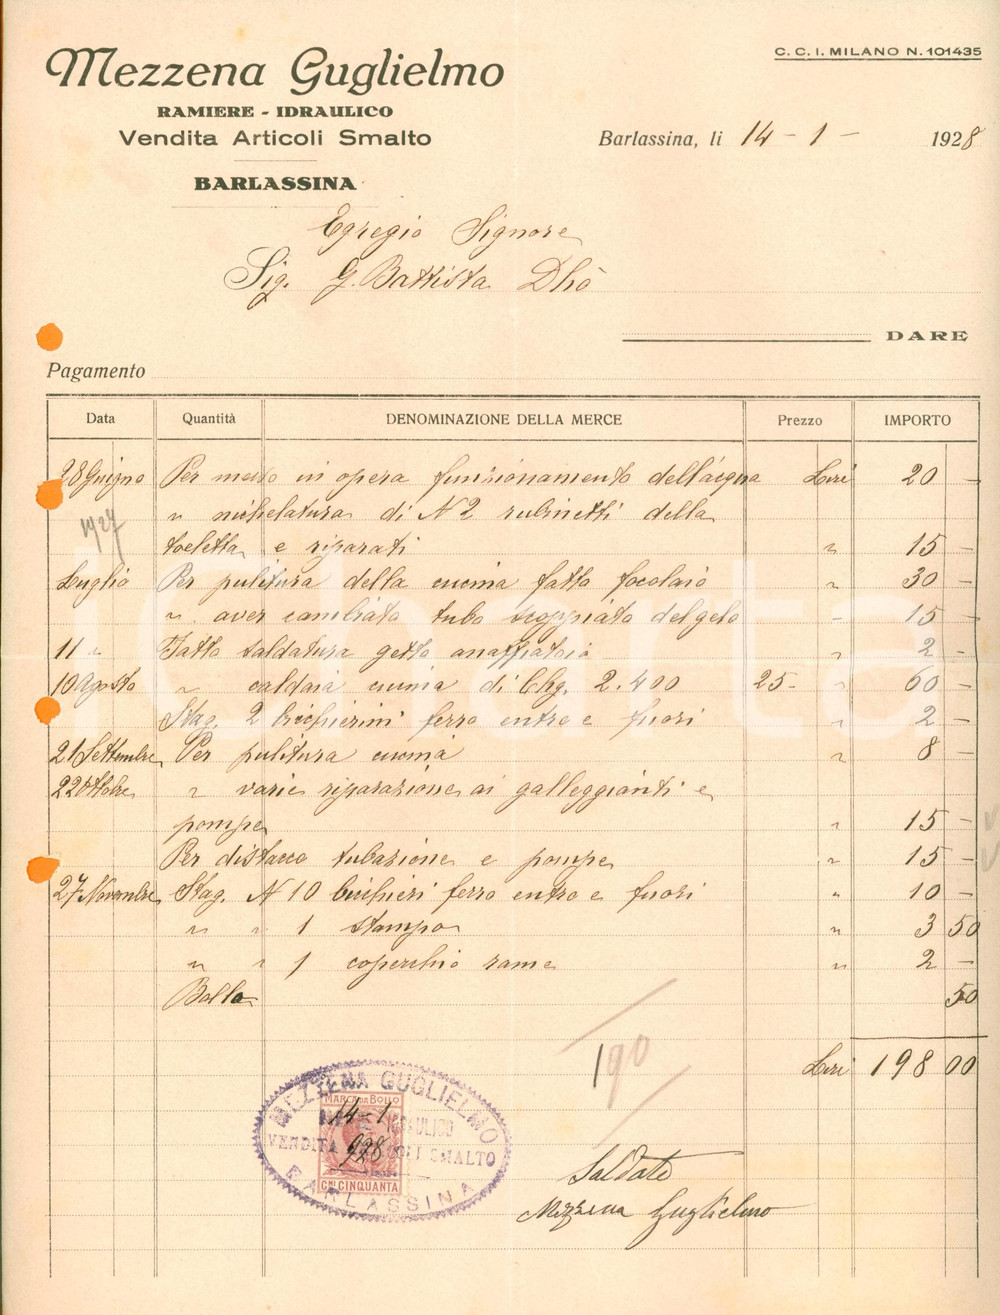 C. C. I. MILANO N. 101435
Mezzena Guglielmo
RAMIERE - IDRAULICO
Vendita Articoli Smalto
BARLASSINA
Barlassina, li 14 - 1 - 1928
Egregio Signore
Sig. G. Battista Dhò
DARE
Pagamento
Data Quantità DENOMINAZIONE DELLA MERCE Prezzo IMPORTO
28 Giugno Per messo in opera funzionamento dell'acqua Lire 20 -
1927 " nichelatura di N 2 rubinetti della
toeletta e riparati " 15 -
Luglio Per pulitura della cucina fatto focolaio " 30 -
" aver cambiato tubo scoppiato del gelo " 15 -
11 " Fatto saldatura getto anaffiatoio " 2 -
10 Agosto " caldaia cucina di Chg. 2.400 25 - " 60 -
Stag. 2 bicchierini ferro entro e fuori " 2 -
21 Settembre Per pulitura cucina " 8 -
22 Ottobre " varie riparazione ai galleggianti e
pompe " 15 -
Per distacco tubazione e pompe " 15 -
27 Novembre Stag. N 10 bicchieri ferro entro e fuori " 10 -
" " 1 stampo " 3 50
" " 1 coperchio rame " 2 -
Bollo 50
Lire 198 00
190
MEZZENA GUGLIELMO
IDRAULICO
VENDITA ARTICOLI SMALTO
BARLASSINA
MARCA DA BOLLO
14-1
928
CMI CINQUANTA
Saldato
Mezzena Guglielmo
iCharta